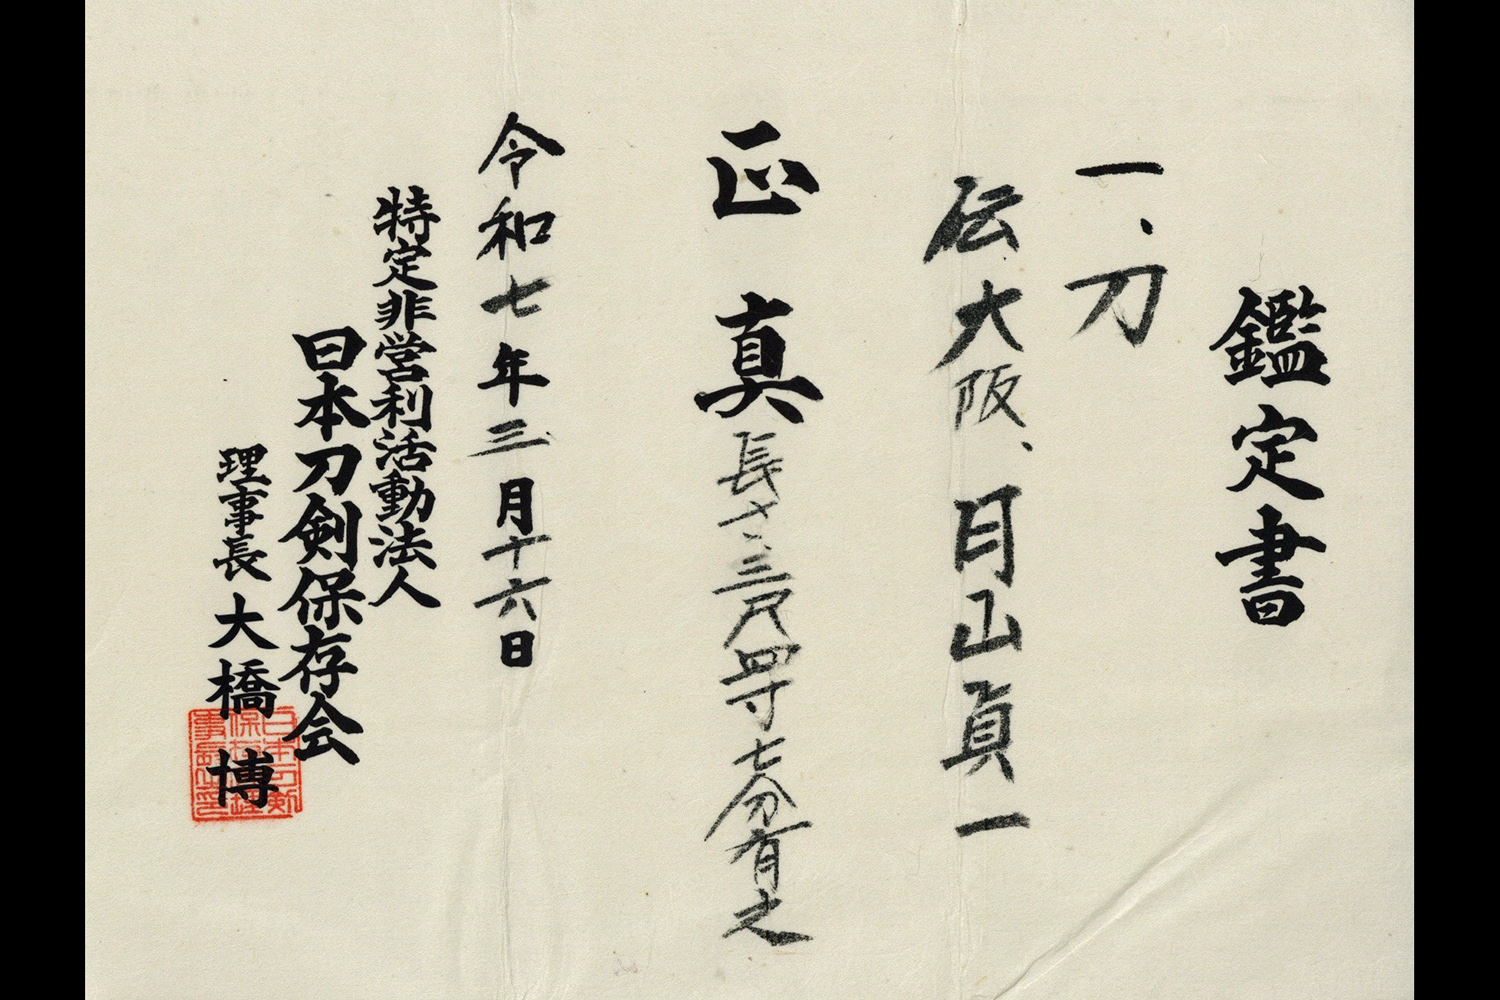 鑑定書
一、刀
伝大阪、月山貞一
正真 長さ、三尺四寸七分有之
令和七年三月十六日
特定非営利活動法人
日本刀剣保存会
理事長 大橋 博